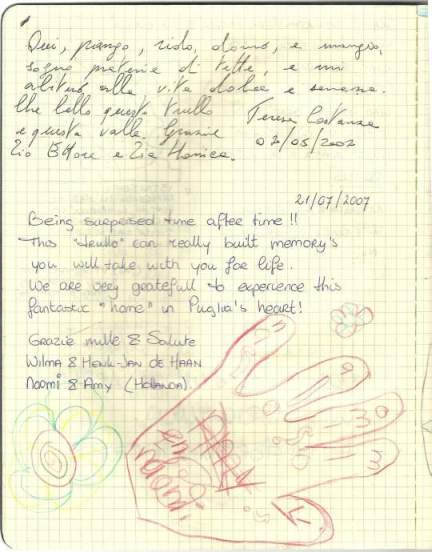 Qui, piango, rido, dormo, e mangio,
sogno praterie di tette, e mi
abituo alla vita dolce e serena.
Che bello questo trullo Teresa Costanza
e questa valle. Grazie 02/05/2007
Zio Ettore e Zia Monica.
21/07/2007
Being surprised time after time !!
This "trullo" can really built memory's
you will take with you for life.
We are very gratefull to experience this
fantastic "home" in Puglia's heart!
Grazie mille & Salute
Wilma & Henk-Jan de Haan
Naomi & Amy (Hollanda).
en
naomi